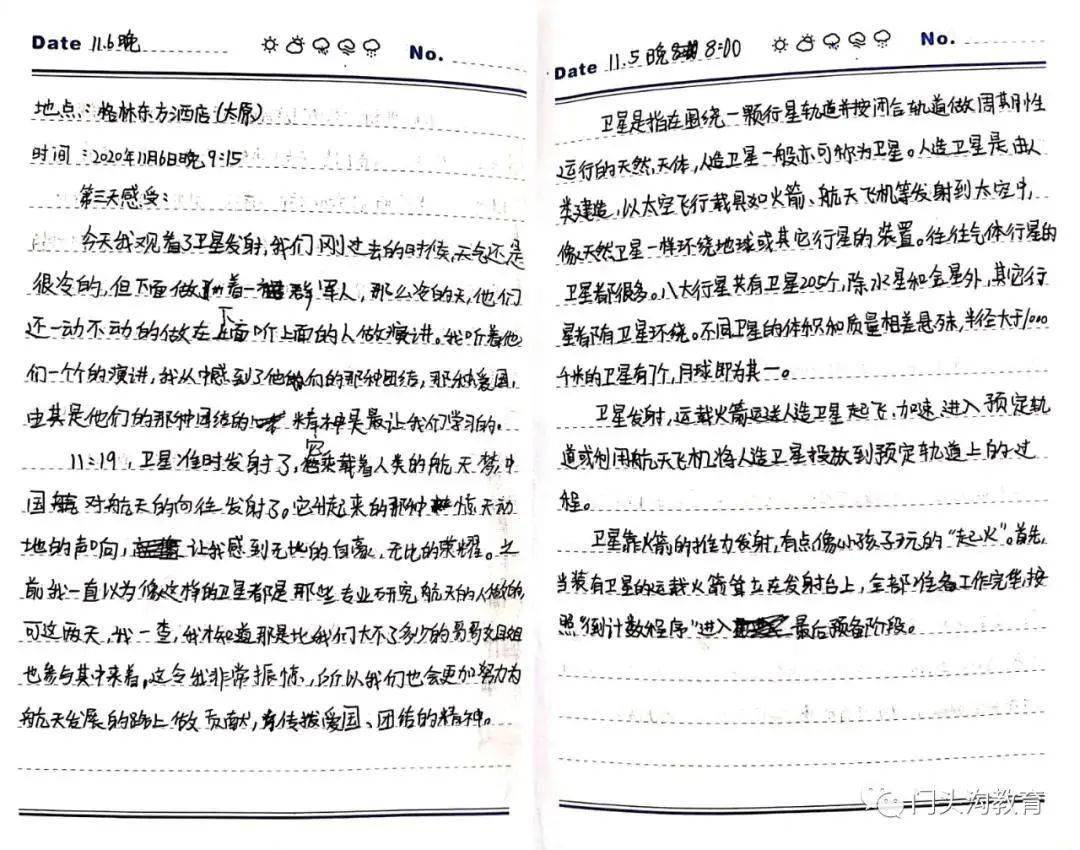 Date 11.6晚 No.
地点:格林东方酒店(太原)
时间:2020年11月6日晚9:15
第三天感受:
今天我观看了卫星发射,我们刚过去的时候,天气还是
很冷的,但下面做着一群军人,那么冷的天,他们
还一动不动的做在下面听上面的人做演讲。我听着他
们一个个的演讲,我从中感到了他们的那种团结,那种爱国,
由其是他们的那种团结的精神是最让我们学习的。
11:19,卫星准时发射了,它乘载着人类的航天梦,中
国对航天的向往发射了。它升起来的那种惊天动
地的声响,让我感到无比的自豪,无比的荣耀。之
前我一直以为像这样的卫星都是那些专业研究航天的人做的,
可这两天,我一查,我才知道那是比我们大不了多少的哥哥姐姐
也参与其中来着,这令我非常振惊,所以我们也会更加努力为
航天发展的路上做贡献,传拨爱国、团结的精神。
Date 11.5晚 8:00 No.
卫星是指在围绕一颗行星轨道并按闭合轨道做周期性
运行的天然天体,人造卫星一般亦可称为卫星。人造卫星是由人
类建造,以太空飞行载具如火箭、航天飞机等发射到太空中,
像天然卫星一样环绕地球或其它行星的装置。往往气体行星的
卫星都很多。八大行星共有卫星205个,除水星和金星外,其它行
星都有卫星环绕。不同卫星的体积和质量相差悬殊,半径大于1000
千米的卫星有7个,月球即为其一。
卫星发射,运载火箭运送人造卫星起飞、加速、进入预定轨
道或利用航天飞机将人造卫星投放到预定轨道上的过
程。
卫星靠火箭的推力发射,有点像小孩子玩的"起火"。首先,
当装有卫星的运载火箭耸立在发射台上,全部准备工作完毕,按
照"倒计数程序"进入最后预备阶段。
门头沟教育